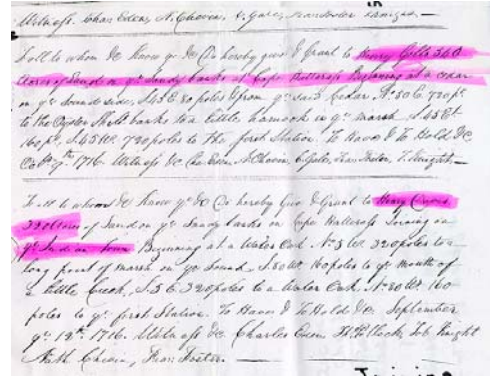 Witness Chas Eden, N. Chevin, C. Gale, Fran Foster T. Knight.—
To all to whom &c Know ye &c Do hereby give & Grant to Henry Gibbs 360
Acres of Land on ye Sandy banks at Cape Hatteras Begining at a Cedar
on ye Sound side, S45 E 80 poles & from ye said Cedar No 50 E. 720 po
to the Oyster Shell banks to a little hamock in ye marsh, S45 Et
160 po, S.45 W. 720 poles to the first Station. To Have & To Hold &c
9th 1716. Witness &c Chas Eden, N. Chevin, C. Gale, Fran Foster, T. Knight.—
To all to whom &c Know ye &c Do hereby Give & Grant to Henry
320 Acres of Land on ye Sandy banks on Cape Hatteras Joining on
ye Indian Town Begining at a Water Oak, No 5 Wt 320 poles to a
long point of marsh on ye Sound, S.80 Wt 160 poles to ye mouth of
a little Creek, S.5 E. 320 poles to a Water Oak, No 80 Et 160
poles to ye first Station. To Have & To Hold &c. September
ye 12th 1716. Witness &c Charles Eden Th. Pollock, Tob Knight
Nath Chevin, Fran Foster.